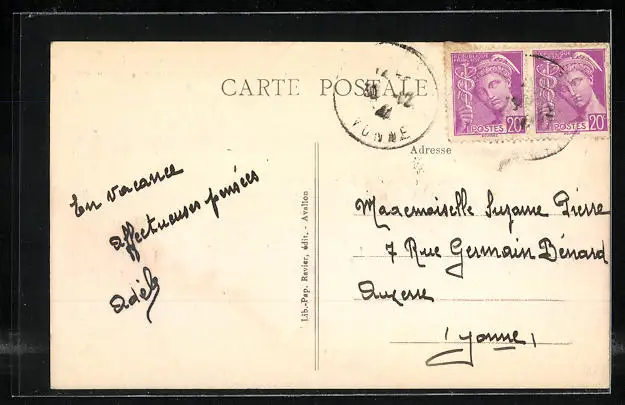 CARTE POSTALE
RÉPUBLIQUE FRANÇAISE
POSTES 20c
RÉPUBLIQUE FRANÇAISE
POSTES 20c
YONNE
Adresse
En vacance
affectueuses pensées
Adèle
Lib.-Pap. Revier, édit. - Avallon
Mademoiselle Suzanne Pierre
7 Rue Germain Bénard
Auxerre
(Yonne)